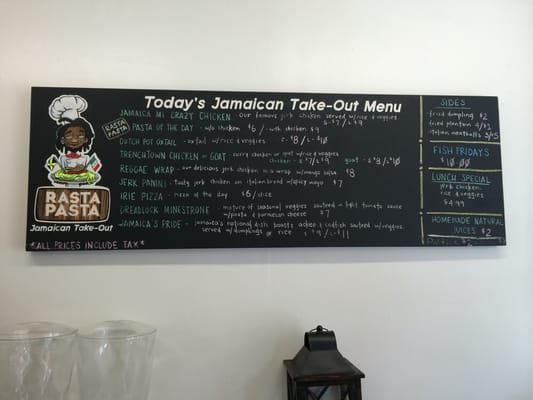 Today's Jamaican Take-Out Menu
JAMAICA MI CRAZY CHICKEN - our famous jerk chicken served w/rice & veggies.
s - $7 / L $9
RASTA PASTA
PASTA OF THE DAY - w/o chicken $6 / with chicken $9
DUTCH POT OXTAIL - oxtail w/rice & veggies s - $8 / L - $10
TRENCHTOWN CHICKEN or GOAT - curry chicken or goat w/rice & veggies
chicken - s $7 / L $9 goat - s $8 / L $10
REGGAE WRAP - our delicious jerk chicken in a wrap w/mango salsa $8
JERK PANINI - tasty jerk chicken on italian bread w/spicy mayo $7
IRIE PIZZA - pizza of the day $6 / slice
DREADLOCK MINESTRONE - mixture of seasonal veggies sauteed in light tomato sauce
w/pasta & parmesan cheese $7
JAMAICA'S PRIDE - jamaica's national dish boasts ackee & codfish sauteed w/veggies.
served w/dumplings or rice s - $9 / L - $11
RASTA
PASTA
Jamaican Take-Out
*ALL PRICES INCLUDE TAX*
SIDES
fried dumpling $2
fried plantain 4/$3
italian meatballs 3/$5
FISH FRIDAYS
$10.00
LUNCH SPECIAL
jerk chicken,
rice & veggies
$4.99
HOMEMADE NATURAL
JUICES $2